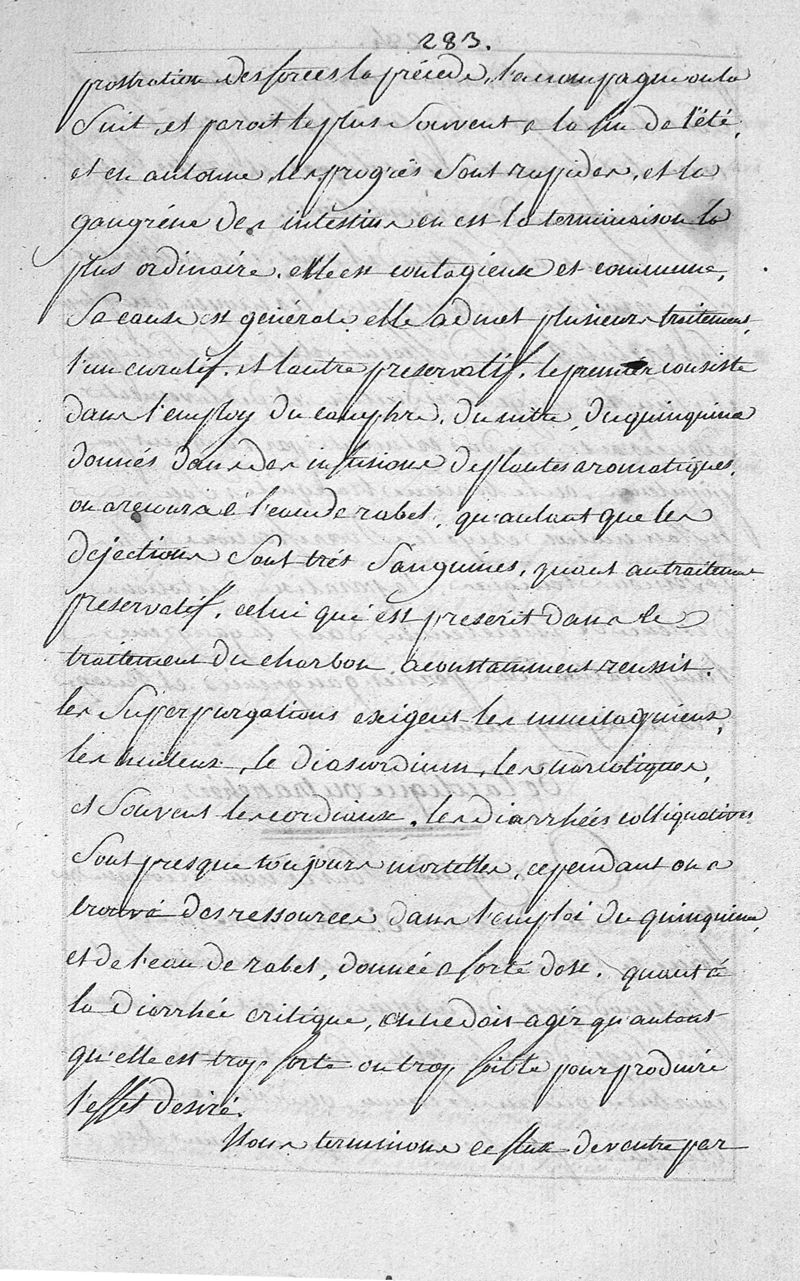 283.
prostration des forces la précéde, l'acompagne ou la
Suit, et paroit le plus Souvent a la fin de l'été,
et en automne, les progrès Sont rapides, et la
gangréne des intestins en est la terminaison la
plus ordinaire. elle est contagieuse et commune,
Sa cause est générale. elle admet plusieurs traitement,
l'un curatif, et l'autre préservatif, le premier consiste
dans l'employ du camphre, du nitre, du quinquina
donnés dans des infusions de plantes aromatiques,
on a recours à l'eau de rabel, qu'autant que les
dejections Sont trés Sanguines, quant au traitement
préservatif, celui qui est prescrit dans le
traitement du charbon a constamment reussit.
les Superpurgations exigent les mucilagineux,
les huileux, le diascordium, les narcotiques,
et Souvent les cordiaux. les diarrhées colliquatives
Sont presque toujours mortelles, cependant on a
trouvé des ressources dans l'emploi du quinquina,
et de l'eau de rabel, donnée a forte dose. quant à
la diarrhée critique, on ne doit agir qu'autant
qu'elle est trop forte ou trop foible pour produire
l'effet désiré.
Nous terminons ce flux de ventre par